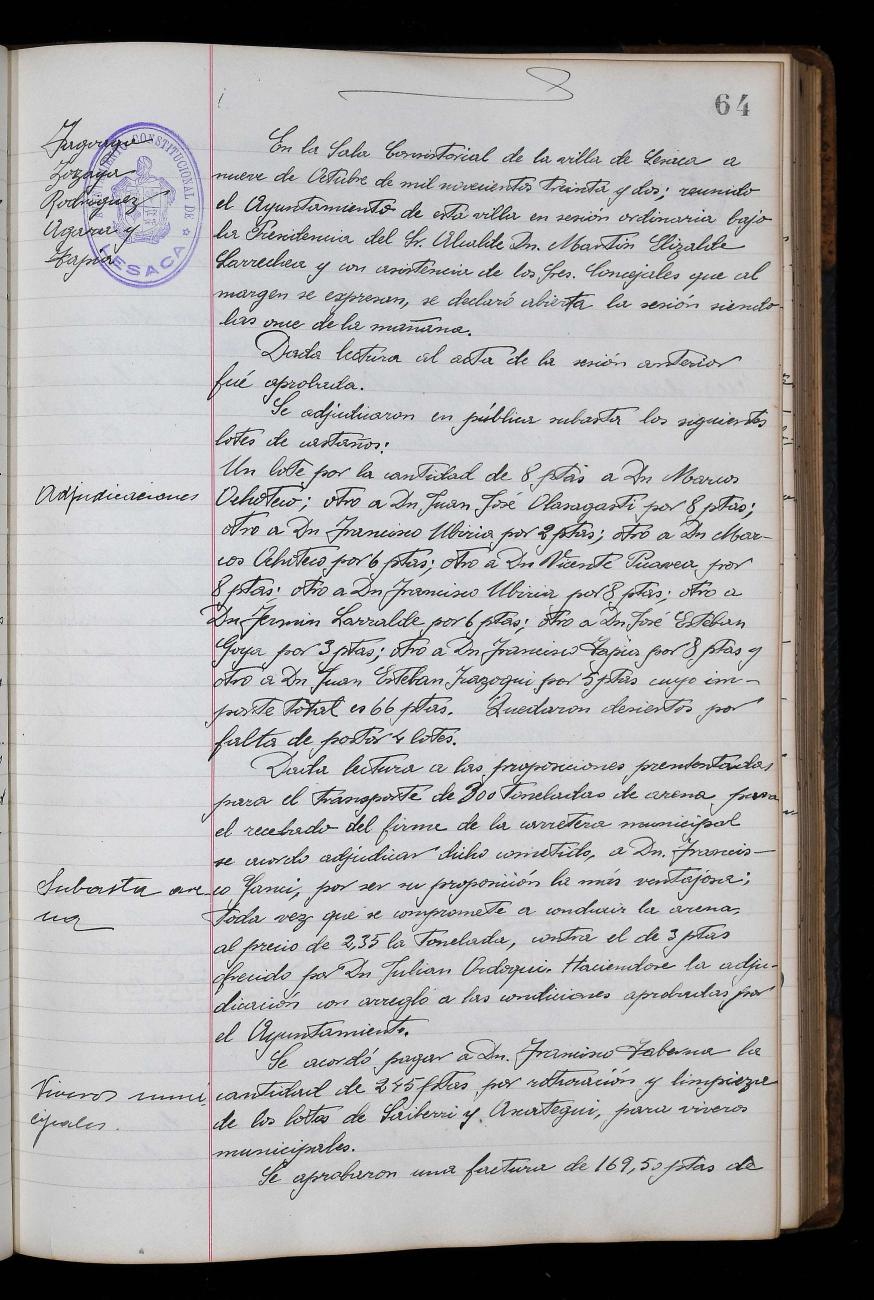 64
Zozaya
Rodriguez
Agara y
Tapia
AYUNTAMIENTO CONSTITUCIONAL DE LESACA
En la Sala Consistorial de la villa de Lesaca a
nueve de Octubre de mil novecientos treinta y dos; reunido
el Ayuntamiento de esta villa en sesión ordinaria bajo
la Presidencia del Sr. Alcalde Dn. Martín Elizalde
Larrechea y con asistencia de los Sres. Concejales que al
margen se expresan, se declaró abierta la sesión siendo
las once de la mañana.
Dada lectura al acta de la sesión anterior
fué aprobada.
Se adjudicaron en pública subasta los siguientes
lotes de castaños:
Adjudicaciones
Un lote por la cantidad de 8 ptas a Dn Marcos
Ochoteco; otro a Dn Juan José Olasagasti por 8 ptas;
otro a Dn Francisco Ubiria por 2 ptas; otro a Dn Mar-
cos Ochoteco por 6 ptas; otro a Dn Vicente por
8 ptas; otro a Dn Francisco Ubiria por 8 ptas; otro a
Dn Fermin Larralde por 6 ptas; otro a Dn José Esteban
Goya por 3 ptas; otro a Dn Francisco Tapia por 8 ptas y
otro a Dn Juan Esteban Irazoqui por 5 ptas cuyo im-
porte total es 66 ptas. Quedaron desiertos por
falta de postor 4 lotes.
Dada lectura a las proposiciones presentadas
para el transporte de 300 toneladas de arena para
el recebado del firme de la carretera municipal
se acordo adjudicar dicho cometido, a Dn. Francis-
Subasta are-
na
co Yanci, por ser su proposición la más ventajosa;
toda vez que se compromete a conducir la arena,
al precio de 2,35 la tonelada, contra el de 3 ptas
ofrecido por Dn Julian Ordoqui. Haciendose la adju-
dicación con arreglo a las condiciones aprobadas por
el Ayuntamiento.
Se acordó pagar a Dn. Francisco Taberna la
Viveros muni-
cipales.
cantidad de 245 ptas por roturación y limpieza
de los lotes de y Axategui, para viveros
municipales.
Se aprobaron una factura de 169,50 ptas de